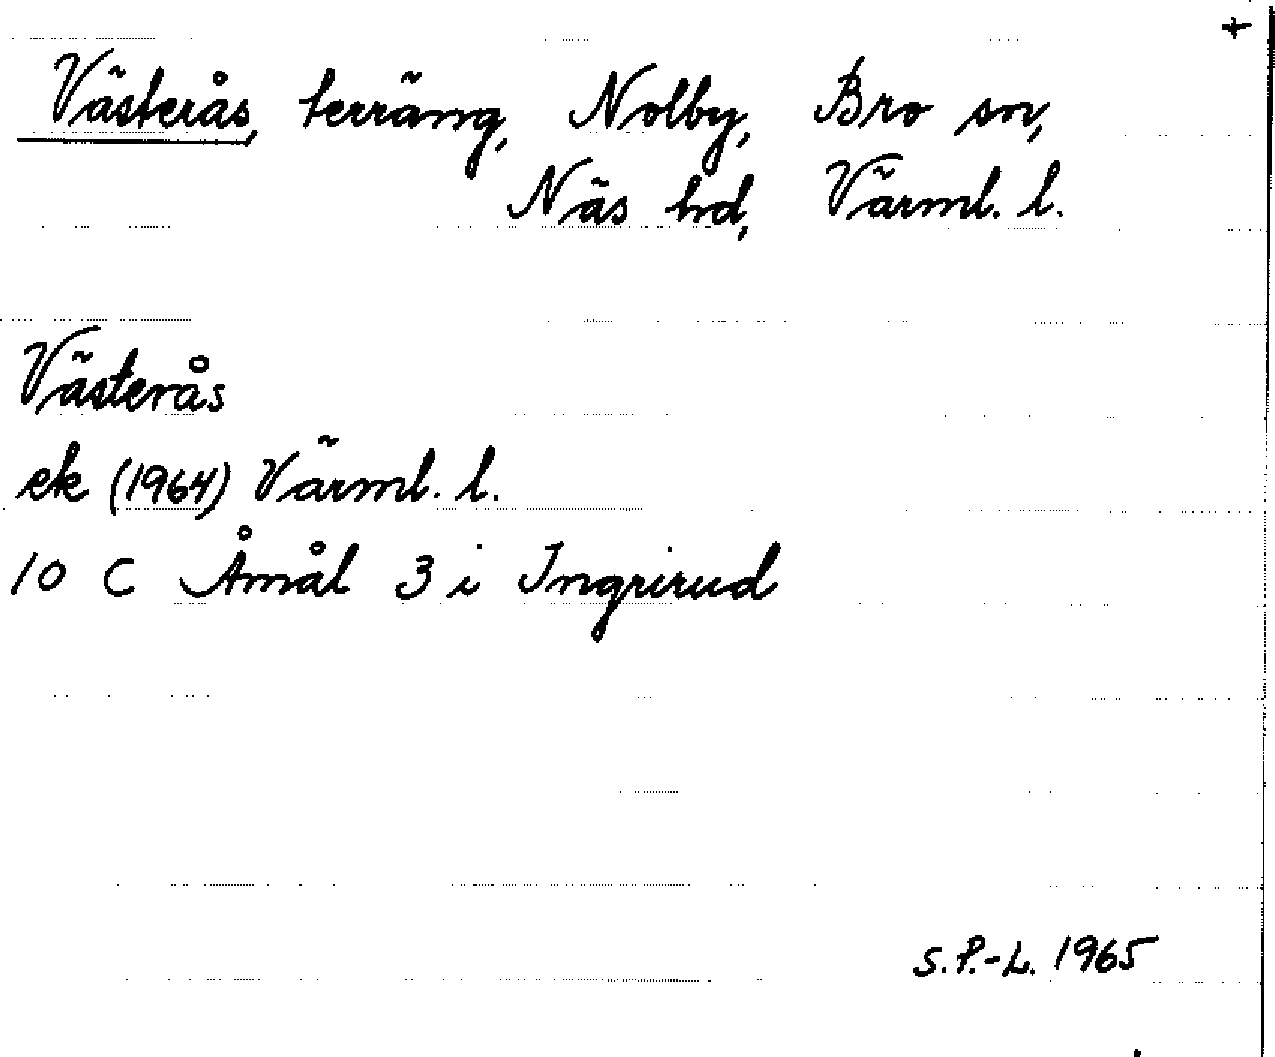 +
Västerås, terräng, Nolby, Bro sn,
Näs hd, Värml. l.
Västerås
ek (1964) Värml. l.
10 C Åmål 3 i Ingrirud
S.P.-L. 1965